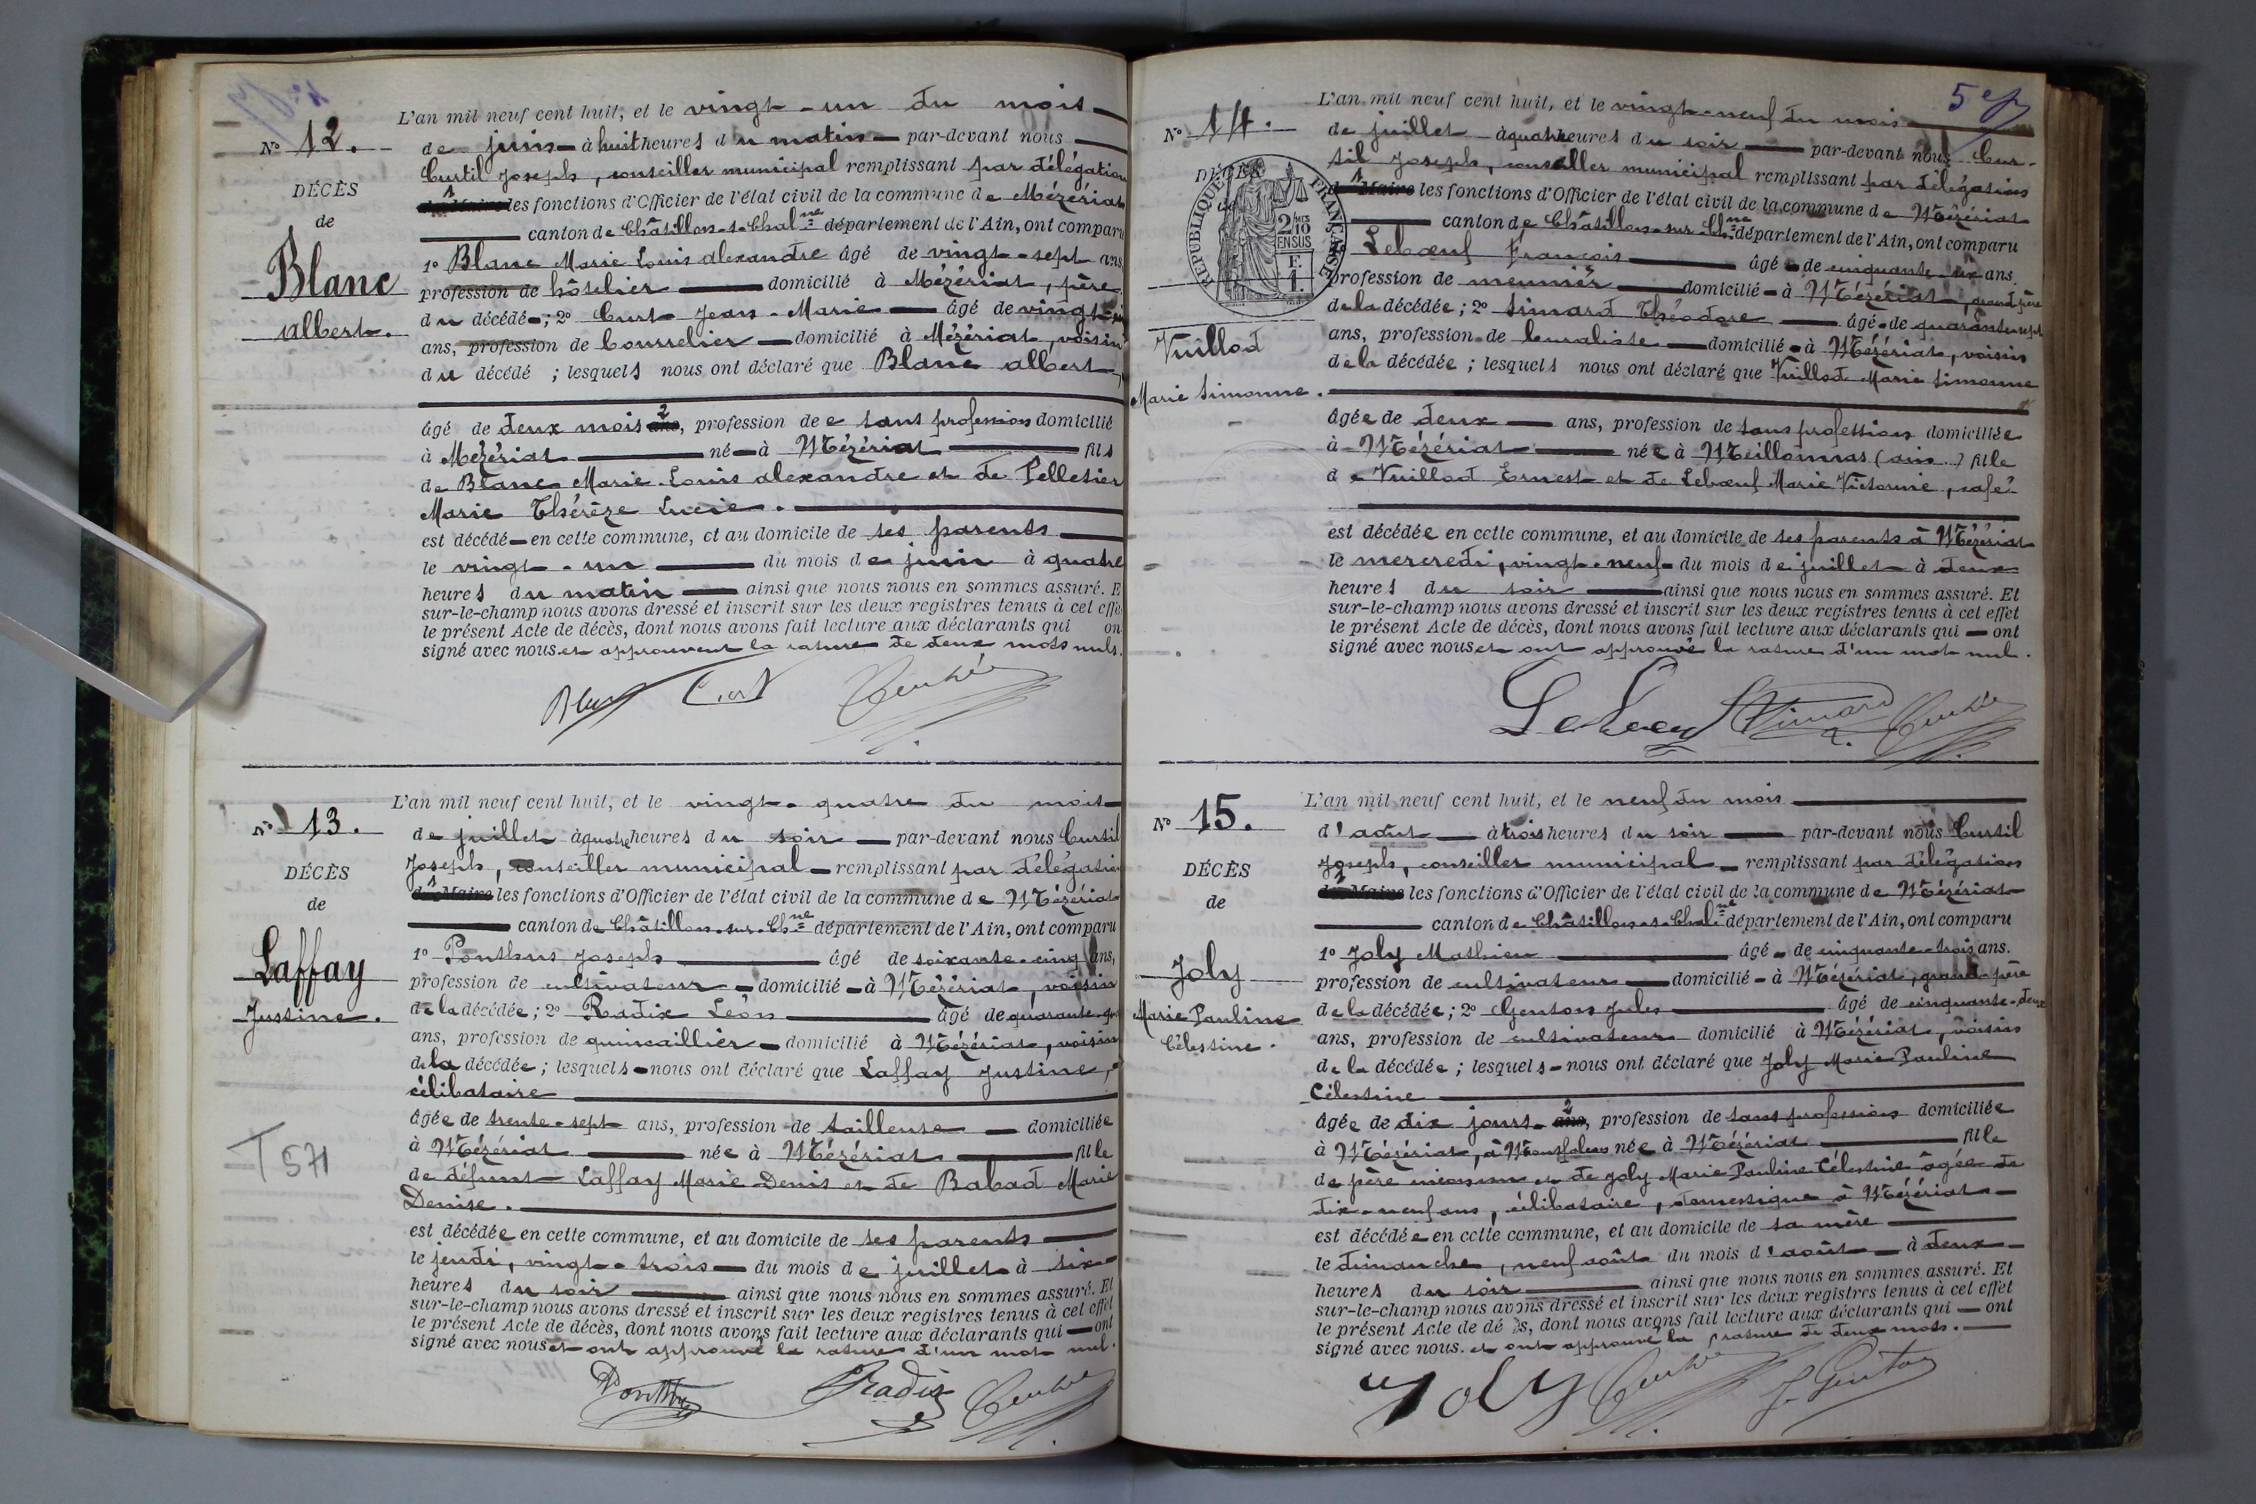 L'an mil neuf cent huit, et le vingt-un du mois
N° 12.
de juin à huit heures du matin par-devant nous
Curtil Joseph, conseiller municipal remplissant par délégation
les fonctions d'Officier de l'état civil de la commune de Mézériat
canton de Châtillon-s-Chalne département de l'Ain, ont comparu
DÉCÈS
de
Blanc
albert.
1° Blanc Marie Louis alexandre âgé de vingt-sept ans
profession de hôtelier domicilié à Mézériat, père
du décédé; 2° Curt Jean-Marie âgé de vingt-
ans, profession de bourrelier domicilié à Mézériat, voisin
du décédé; lesquels nous ont déclaré que Blanc albert
âgé de deux mois ans, profession de e sans profession domicilié
à Mézériat né à Mézériat fils
de Blanc Marie-Louis alexandre et de Pelletier
Marie Thérèze Lucie.
est décédé en cette commune, et au domicile de ses parents
le vingt-un du mois de juin à quatre
heures du matin ainsi que nous nous en sommes assuré. E
sur-le-champ nous avons dressé et inscrit sur les deux registres tenus à cet effe
le présent Acte de décès, dont nous avons fait lecture aux déclarants qui on
signé avec nous et approuvent la rature de deux mots nuls.
Blanc Curt
L'an mil neuf cent huit, et le vingt-quatre du mois
N° 13.
de juillet à quatre heures du soir par-devant nous Curtil
Joseph, conseiller municipal remplissant par délégation
du Maire les fonctions d'Officier de l'état civil de la commune de Mézériat
canton de Châtillon-sur-Chne département de l'Ain, ont comparu
DÉCÈS
de
Laffay
Justine.
1° Ponthus Joseph âgé de soixante-cinq ans,
profession de cultivateur domicilié à Mézériat, voisin
de la décédée; 2° Radix Léon âgé de quarante-
ans, profession de quincaillier domicilié à Mézériat, voisin
de la décédée; lesquels nous ont déclaré que Laffay Justine,
célibataire
âgée de trente-sept ans, profession de tailleuse domiciliée
à Mézériat née à Mézériat fille
T 571
de défunt Laffay Marie Denis et de Babad Marie
Denise.
est décédée en cette commune, et au domicile de ses parents
le jeudi, vingt-trois du mois de juillet à six
heures du soir ainsi que nous nous en sommes assuré. Et
sur-le-champ nous avons dressé et inscrit sur les deux registres tenus à cet effet
le présent Acte de décès, dont nous avons fait lecture aux déclarants qui ont
signé avec nous et ont approuvé la rature d'un mot nul.
Ponthus Radix
5e
L'an mil neuf cent huit, et le vingt-neuf du mois
N° 14.
de juillet à quatre heures du soir par-devant nous Cur-
til Joseph, conseiller municipal remplissant par délégation
du Maire les fonctions d'Officier de l'état civil de la commune de Mézériat
canton de Châtillon-sur-Chne département de l'Ain, ont comparu
DÉCÈS
RÉPUBLIQUE FRANÇAISE
2/10 EN SUS
F.
1.
Vuillod
Marie Simonne.
Lebœuf François âgé de cinquante-six ans
profession de meunier domicilié à Mézériat, grand père
de la décédée; 2° Simard Théodore âgé de quarante-sept
ans, profession de buraliste domicilié à Mézériat, voisin
de la décédée; lesquels nous ont déclaré que Vuillod Marie Simonne
âgée de deux ans, profession de sans profession domiciliée
à Mézériat née à Meillonnas (ain) fille
de Vuillod Ernest et de Lebœuf Marie Victorine,
est décédée en cette commune, et au domicile de ses parents à Mézériat
le mercredi, vingt-neuf du mois de juillet à deux
heures du soir ainsi que nous nous en sommes assuré. Et
sur-le-champ nous avons dressé et inscrit sur les deux registres tenus à cet effet
le présent Acte de décès, dont nous avons fait lecture aux déclarants qui ont
signé avec nous et ont approuvé la rature d'un mot nul.
Lebœuf Simard
L'an mil neuf cent huit, et le neuf du mois
N° 15.
d'août à trois heures du soir par-devant nous Curtil
Joseph, conseiller municipal remplissant par délégation
du Maire les fonctions d'Officier de l'état civil de la commune de Mézériat
canton de Châtillon-s-Chalne département de l'Ain, ont comparu
DÉCÈS
de
Joly
Marie Pauline
Célestine.
1° Joly Mathieu âgé de cinquante-trois ans.
profession de cultivateur domicilié à Mézériat, grand-père
de la décédée; 2° Genton Jules âgé de cinquante-deux
ans, profession de cultivateur domicilié à Mézériat, voisin
de la décédée; lesquels nous ont déclaré que Joly Marie Pauline
Célestine
âgée de dix jours ans, profession de sans profession domiciliée
à Mézériat, à née à Mézériat fille
de père inconnu et de Joly Marie Pauline Célestine âgée de
dix-neuf ans, célibataire, domestique à Mézériat
est décédée en cette commune, et au domicile de sa mère
le dimanche, neuf août du mois d'août à deux
heures du soir ainsi que nous nous en sommes assuré. Et
sur-le-champ nous avons dressé et inscrit sur les deux registres tenus à cet effet
le présent Acte de décès, dont nous avons fait lecture aux déclarants qui ont
signé avec nous. et ont approuvé la rature de deux mots.
Joly J. Genton